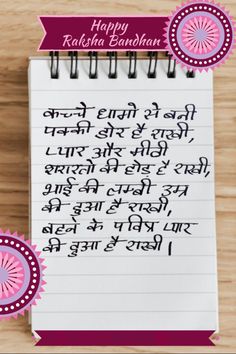 Happy
Raksha Bandhan
कच्चे धागो से बनी
पक्की डोर है राखी,
प्यार और मीठी
शरारतो की होड़ है राखी,
भाई की लम्बी उम्र
की दुआ है राखी,
बहन के पवित्र प्यार
की दुआ है राखी।